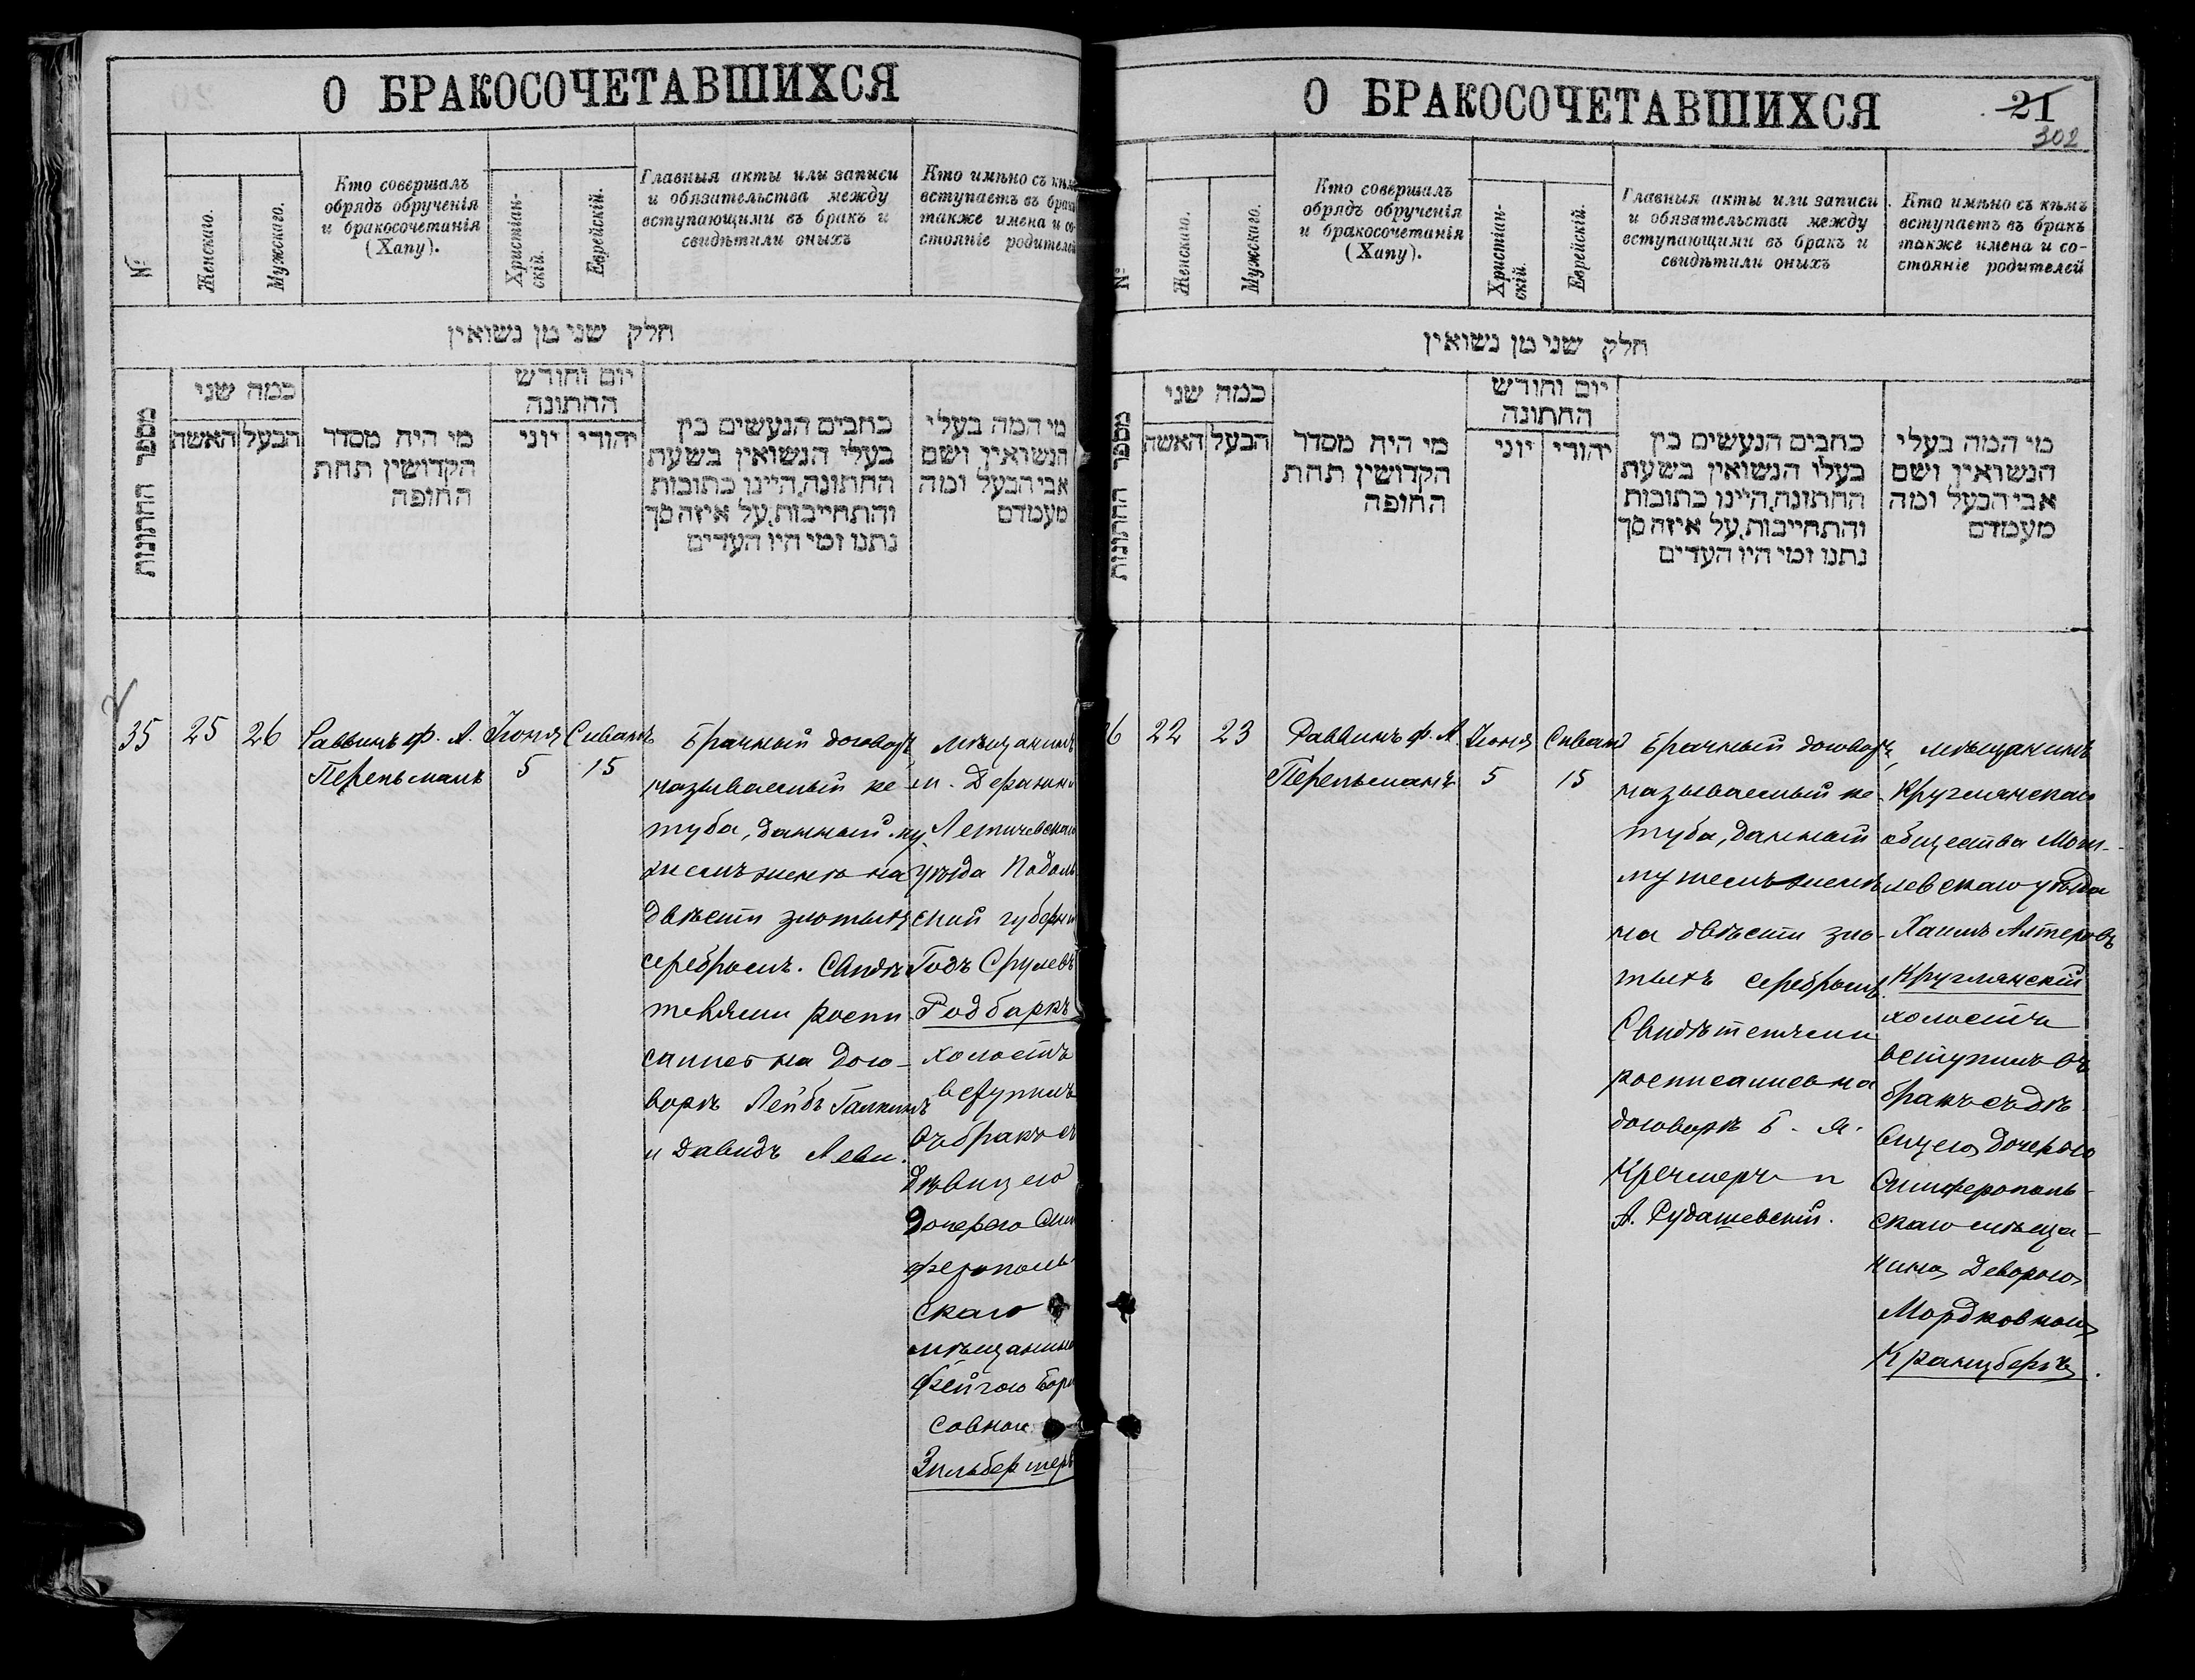 О БРАКОСОЧЕТАВШИХСЯ
№
Женскаго.
Мужскаго.
Кто совершалъ
обрядъ обрученія
и бракосочетанія
(Хапу).
Христіан-
скій.
Еврейскій.
Главныя акты или записи
и обязательства между
вступающими въ бракъ и
свидѣтили оныхъ
Кто имѣно съ кѣмъ
вступаетъ въ бракъ
также имена и со-
стояніе родителей
חלק שני מן נשואין
מספר החתונות
כמה שני
האשה
הבעל
מי היה מסדר
הקדושין תחת
החופה
יום וחודש
החתונה
יוני
יהודי
כתבים הנעשים בין
בעלי הנשואין בשעת
החתונה, היינו כתובות
והתחייבות, על איזה סך
נתנו ומי היו העדים
מי המה בעלי
הנשואין ושם
אבי הבעל ומה
מעמדם
35
25
26
Раввинъ Ф. А.
Перельманъ
Іюня
5
Сиванъ
15
Брачный договоръ
называемый ке-
туба, данный му-
жемъ женѣ на
двѣсти злотыхъ
серебромъ. Свидѣ
телями роспи-
сались на дого-
ворѣ Лейбъ Галкинъ
и Давидъ Леви.
мѣщанинъ
м. Деражни
Летичевскаго
уѣзда Подоль
ской губерніи
Годъ Срулевъ
Годбаркъ
холостъ
вступилъ
въ бракъ съ
дѣвицею
дочерью Сим
ферополь-
скаго
мѣщанина
Фейгою Бори
совною
Зильбершеръ
О БРАКОСОЧЕТАВШИХСЯ
21
302
№
Женскаго.
Мужскаго.
Кто совершалъ
обрядъ обрученія
и бракосочетанія
(Хапу).
Христіан-
скій.
Еврейскій.
Главныя акты или записи
и обязательства между
вступающими въ бракъ и
свидѣтили оныхъ
Кто имѣно съ кѣмъ
вступаетъ въ бракъ
также имена и со-
стояніе родителей
חלק שני מן נשואין
מספר החתונות
כמה שני
האשה
הבעל
מי היה מסדר
הקדושין תחת
החופה
יום וחודש
החתונה
יוני
יהודי
כתבים הנעשים בין
בעלי הנשואין בשעת
החתונה, היינו כתובות
והתחייבות, על איזה סך
נתנו ומי היו העדים
מי המה בעלי
הנשואין ושם
אבי הבעל ומה
מעמדם
6
22
23
Раввинъ Ф. А.
Перельманъ
Іюня
5
Сиванъ
15
Брачный договоръ,
называемый ке-
туба, данный
мужемъ женѣ
на двѣсти зло-
тыхъ серебромъ
Свидѣтелями
росписались на
договорѣ Б. Я.
Кремеръ и
А. Рудашевскій.
мѣщанинъ
Круглянскаго
общества Моги-
левскаго уѣзда
Хаимъ Алтеровъ
Круглянскій
холостъ
вступилъ въ
бракъ съ дѣ-
вицею дочерью
Симферополь-
скаго мѣща-
нина Деворою
Мордковною
Кранцбергъ.